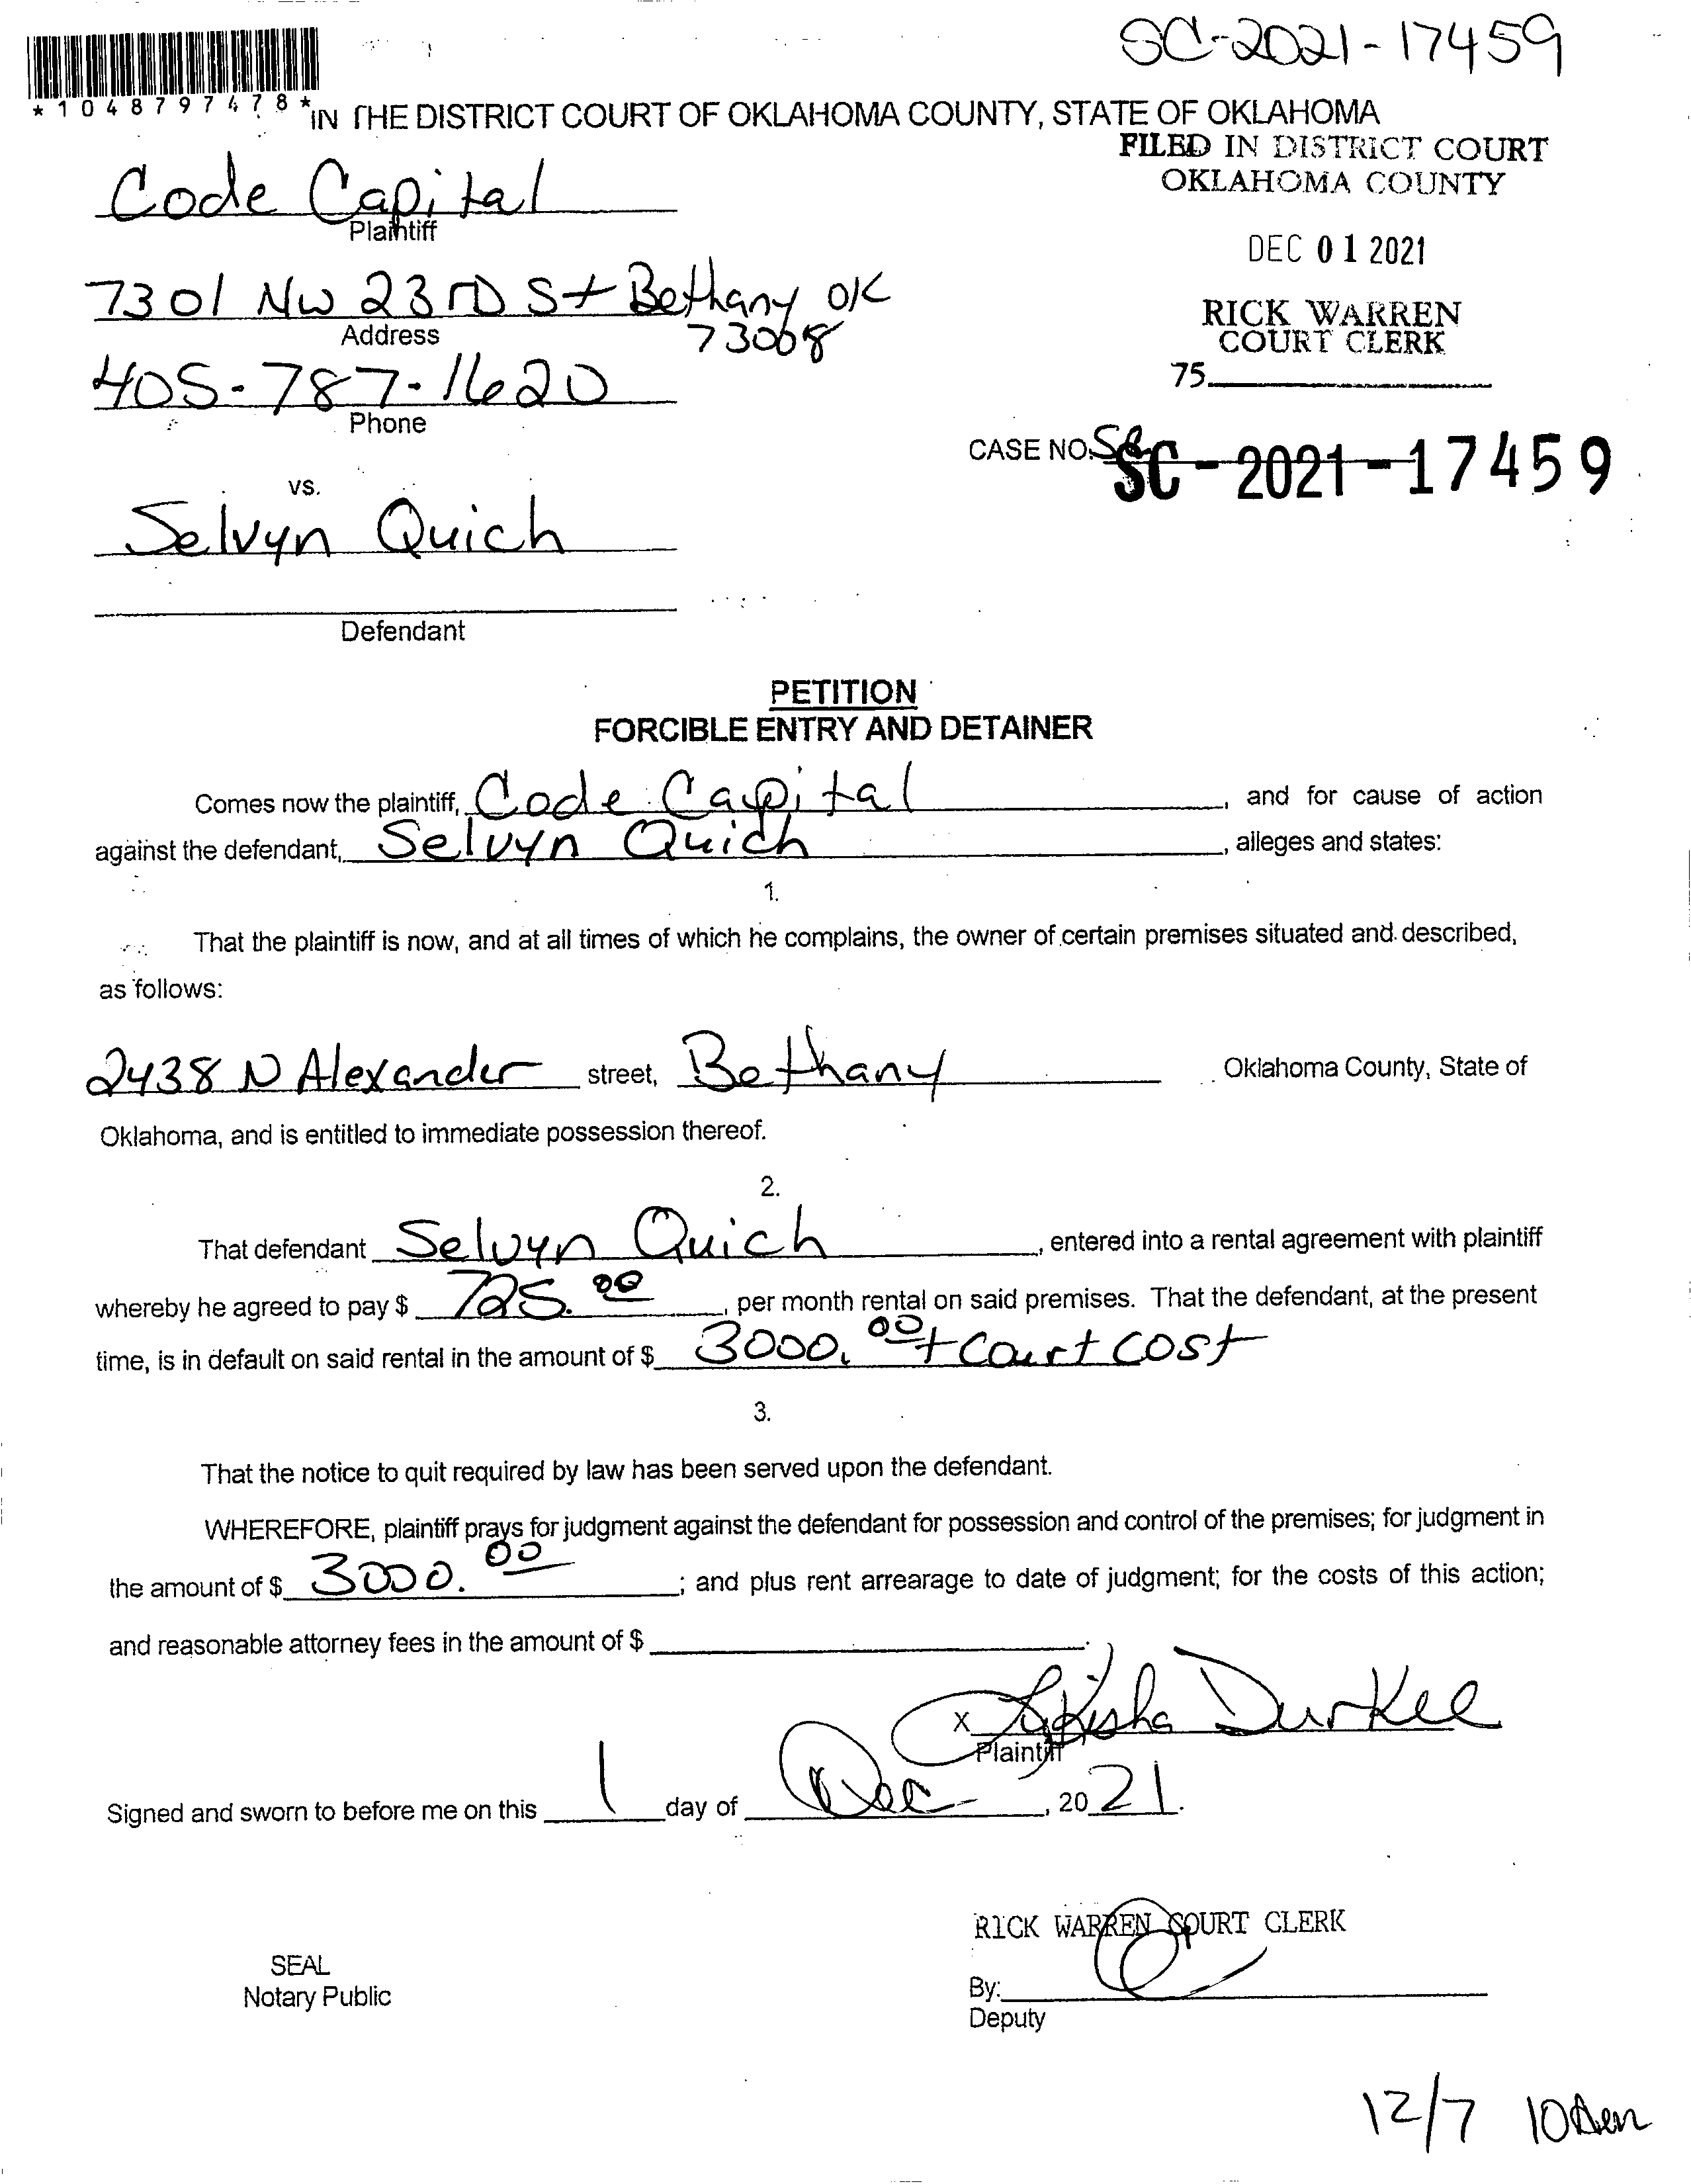 SC-2021-17459
*1048797478*
IN THE DISTRICT COURT OF OKLAHOMA COUNTY, STATE OF OKLAHOMA
FILED IN DISTRICT COURT
OKLAHOMA COUNTY
Code Capital
Plaintiff
DEC 01 2021
7301 NW 23rD St Bethany OK
Address
73008
RICK WARREN
COURT CLERK
405-787-1620
Phone
75
CASE NO. SC-2021-17459
vs.
Selvyn Quich
Defendant
PETITION
FORCIBLE ENTRY AND DETAINER
Comes now the plaintiff, Code Capital, and for cause of action
against the defendant, Selvyn Quich, alleges and states:
1.
That the plaintiff is now, and at all times of which he complains, the owner of certain premises situated and described,
as follows:
2438 N Alexander street, Bethany Oklahoma County, State of
Oklahoma, and is entitled to immediate possession thereof.
2.
That defendant Selvyn Quich, entered into a rental agreement with plaintiff
whereby he agreed to pay $ 725.00, per month rental on said premises. That the defendant, at the present
time, is in default on said rental in the amount of $ 3000.00 + Court cost
3.
That the notice to quit required by law has been served upon the defendant.
WHEREFORE, plaintiff prays for judgment against the defendant for possession and control of the premises; for judgment in
the amount of $ 3000.00; and plus rent arrearage to date of judgment; for the costs of this action;
and reasonable attorney fees in the amount of $ .
X Durkee
Plaintiff
Signed and sworn to before me on this 1 day of Dec, 20 21.
RICK WARREN COURT CLERK
SEAL
Notary Public
By:
Deputy
12/7